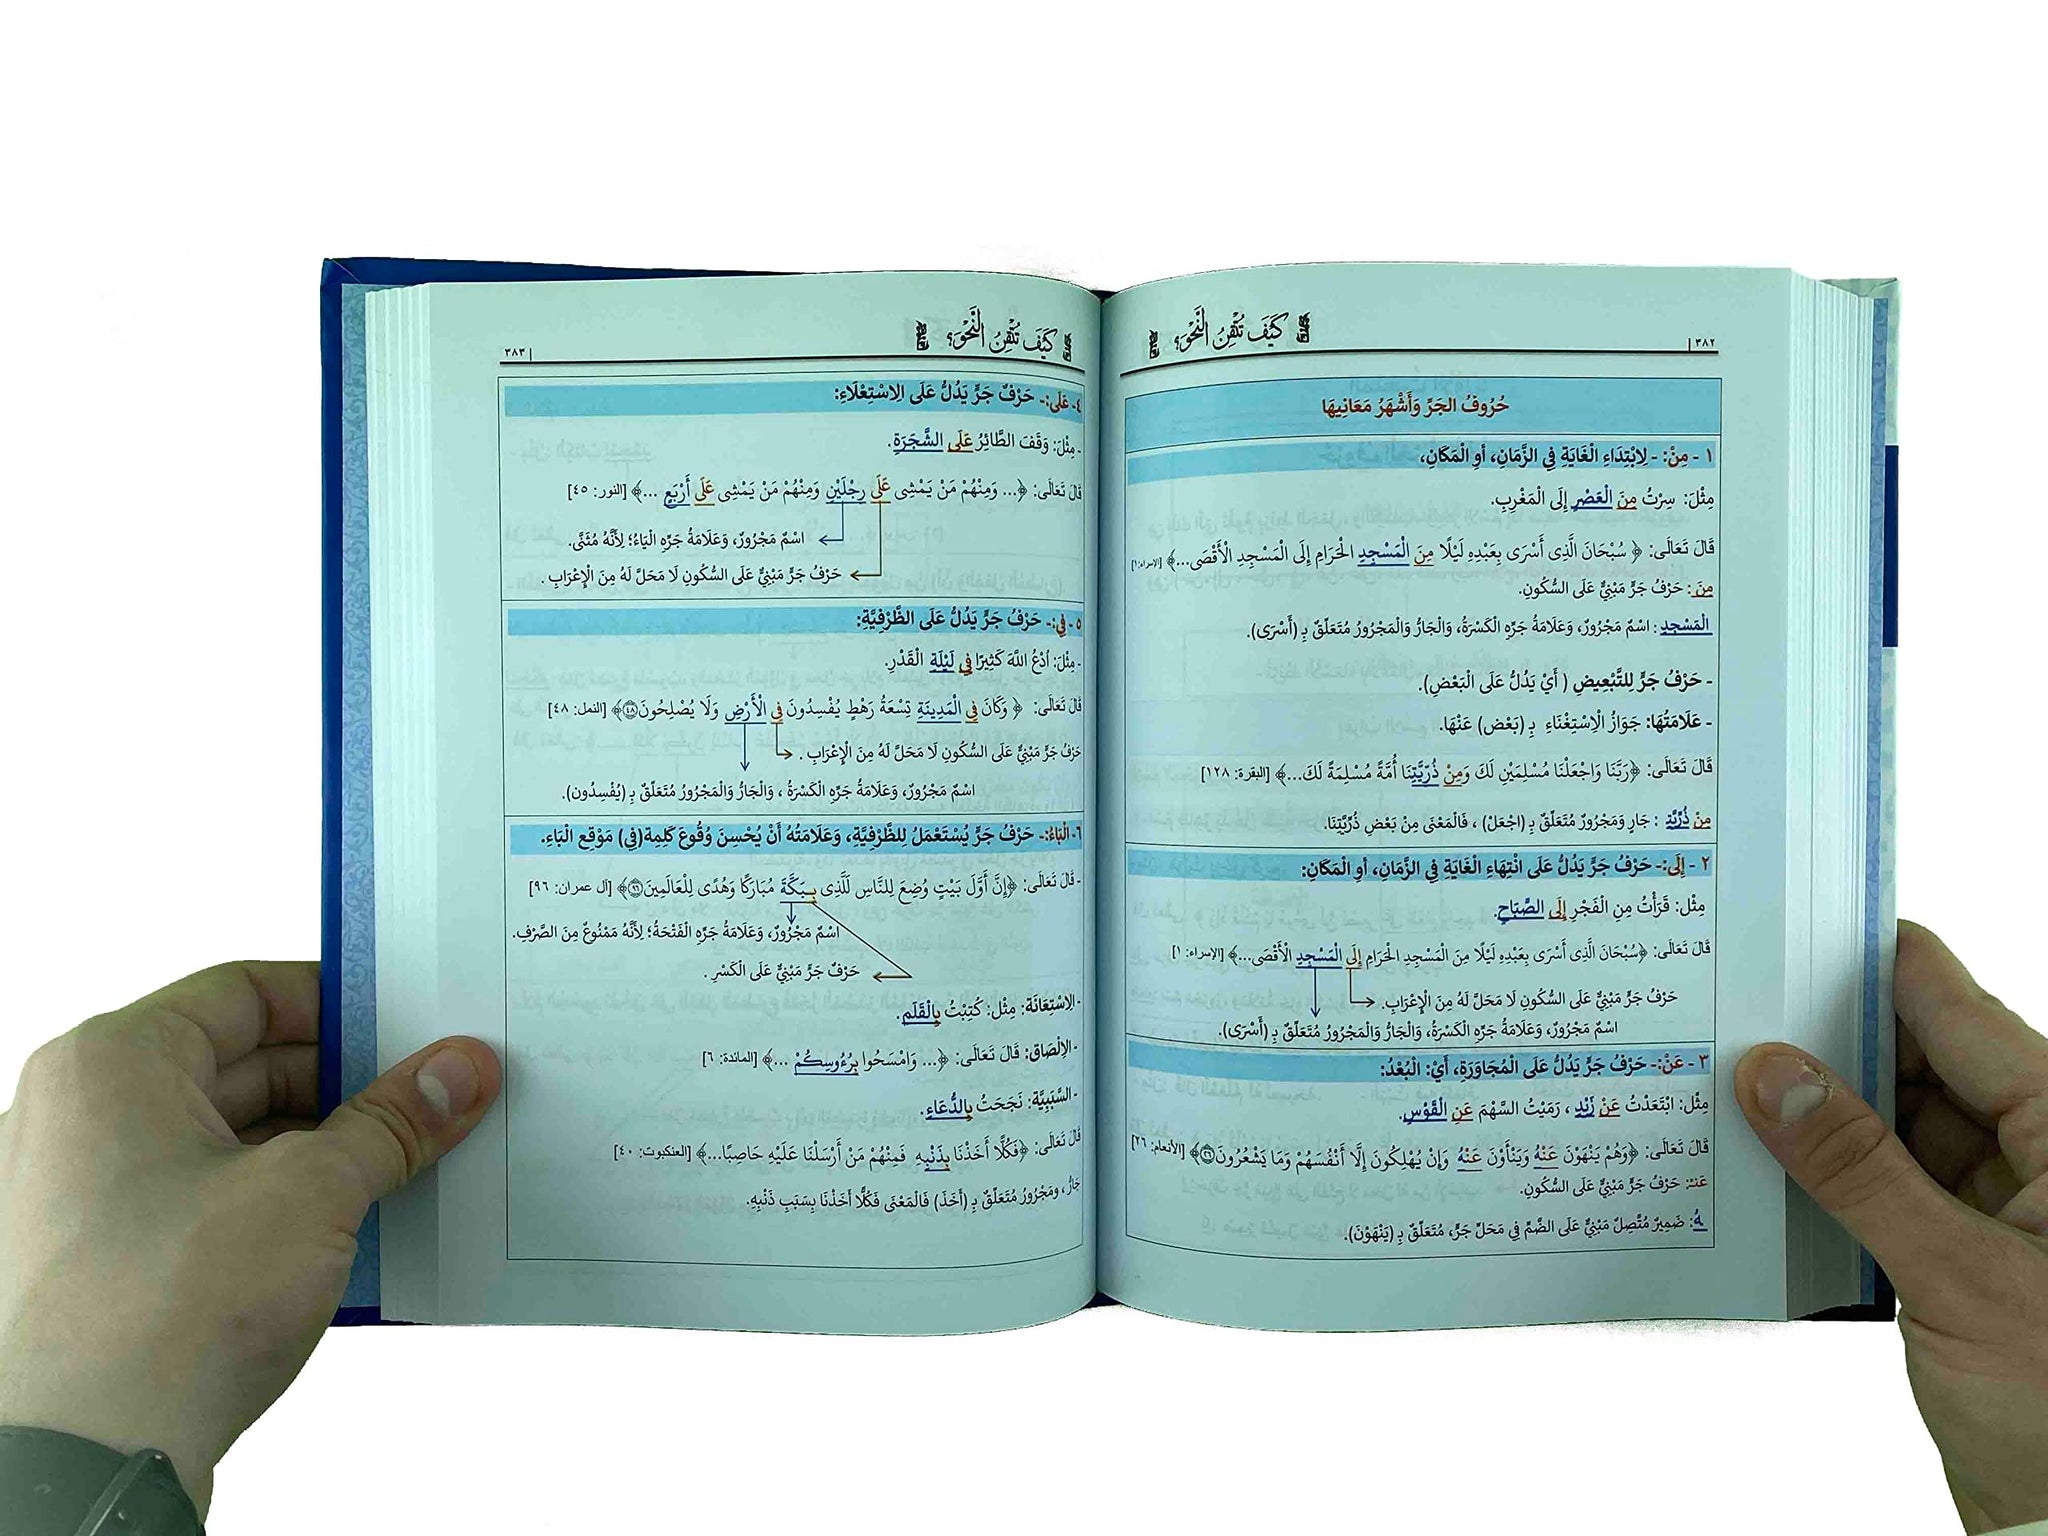 ٣٨٢
كَيْفَ تُتْقِنُ النَّحْوَ؟
حُرُوفُ الجَرِّ وَأَشْهَرُ مَعَانِيهَا
١ - مِنْ: - لِابْتِدَاءِ الْغَايَةِ فِي الزَّمَانِ، أَوِ الْمَكَانِ،
مِثْلَ: سِرْتُ مِنَ الْعَصْرِ إِلَى الْمَغْرِبِ.
قَالَ تَعَالَى: ﴿ سُبْحَانَ الَّذِى أَسْرَى بِعَبْدِهِ لَيْلًا مِنَ الْمَسْجِدِ الْحَرَامِ إِلَى الْمَسْجِدِ الْأَقْصَى...﴾ [الإسراء: ١]
مِنَ : حَرْفُ جَرٍّ مَبْنِيٌّ عَلَى السُّكُونِ.
الْمَسْجِدِ : اسْمٌ مَجْرُورٌ، وَعَلَامَةُ جَرِّهِ الْكَسْرَةُ، وَالْجَارُّ وَالْمَجْرُورُ مُتَعَلِّقٌ بِـ (أَسْرَى).
- حَرْفُ جَرٍّ لِلتَّبْعِيضِ ( أَيْ يَدُلُّ عَلَى الْبَعْضِ).
- عَلَامَتُهَا: جَوَازُ الْاِسْتِغْنَاءِ بِـ (بَعْض) عَنْهَا.
قَالَ تَعَالَى: ﴿رَبَّنَا وَاجْعَلْنَا مُسْلِمَيْنِ لَكَ وَمِنْ ذُرِّيَّتِنَا أُمَّةً مُسْلِمَةً لَكَ...﴾ [البقرة: ١٢٨]
مِنْ ذُرِّيَّةِ : جَارٍ وَمَجْرُورٌ مُتَعَلِّقٌ بِـ (اجْعَلْ) ، فَالْمَعْنَى مِنْ بَعْضِ ذُرِّيَّتِنَا.
٢ - إِلَى:- حَرْفُ جَرٍّ يَدُلُّ عَلَى انْتِهَاءِ الْغَايَةِ فِي الزَّمَانِ، أَوِ الْمَكَانِ:
مِثْل: قَرَأْتُ مِنِ الْفَجْرِ إِلَى الصَّبَاحِ.
قَالَ تَعَالَى: ﴿سُبْحَانَ الَّذِى أَسْرَى بِعَبْدِهِ لَيْلًا مِنَ الْمَسْجِدِ الْحَرَامِ إِلَى الْمَسْجِدِ الْأَقْصَى...﴾ [الإسراء: ١]
حَرْفُ جَرٍّ مَبْنِيٌّ عَلَى السُّكُونِ لَا مَحَلَّ لَهُ مِنَ الْإِعْرَابِ.
اسْمٌ مَجْرُورٌ، وَعَلَامَةُ جَرِّهِ الْكَسْرَةُ، وَالْجَارُّ وَالْمَجْرُورُ مُتَعَلِّقٌ بِـ (أَسْرَى).
٣ - عَنْ:- حَرْفُ جَرٍّ يَدُلُّ عَلَى الْمُجَاوَزَةِ، أَيْ: الْبُعْدُ:
مِثْل: ابْتَعَدْتُ عَنْ زَيْدٍ ، رَمَيْتُ السَّهْمَ عَنِ الْقَوْسِ.
قَالَ تَعَالَى: ﴿وَهُمْ يَنْهَوْنَ عَنْهُ وَيَنْأَوْنَ عَنْهُ وَإِنْ يُهْلِكُونَ إِلَّا أَنْفُسَهُمْ وَمَا يَشْعُرُونَ۝٢٦﴾ [الأنعام: ٢٦]
عَنـ: حَرْفُ جَرٍّ مَبْنِيٌّ عَلَى السُّكُونِ.
ـهُ: ضَمِيرٌ مُتَّصِلٌ مَبْنِيٌّ عَلَى الضَّمِّ فِي مَحَلِّ جَرٍّ، مُتَعَلِّقٌ بِـ (يَنْهَوْنَ).
كَيْفَ تُتْقِنُ النَّحْوَ؟
٣٨٣
٤- عَلَى:- حَرْفُ جَرٍّ يَدُلُّ عَلَى الِاسْتِعْلَاءِ:
- مِثْلَ: وَقَفَ الطَّائِرُ عَلَى الشَّجَرَةِ.
قَالَ تَعَالَى: ﴿... وَمِنْهُمْ مَنْ يَمْشِى عَلَى رِجْلَيْنِ وَمِنْهُمْ مَنْ يَمْشِى عَلَى أَرْبَعٍ ...﴾ [النور: ٤٥]
اسْمٌ مَجْرُورٌ، وَعَلَامَةُ جَرِّهِ الْيَاءُ؛ لِأَنَّهُ مُثَنَّى.
حَرْفُ جَرٍّ مَبْنِيٌّ عَلَى السُّكُونِ لَا مَحَلَّ لَهُ مِنَ الْإِعْرَابِ .
٥ - فِي:- حَرْفُ جَرٍّ يَدُلُّ عَلَى الظَّرْفِيَّةِ:
- مِثْلَ: اُدْعُ اللَّهَ كَثِيرًا فِي لَيْلَةِ الْقَدْرِ.
قَالَ تَعَالَى: ﴿ وَكَانَ فِي الْمَدِينَةِ تِسْعَةُ رَهْطٍ يُفْسِدُونَ فِي الْأَرْضِ وَلَا يُصْلِحُونَ۝٤٨﴾ [النمل: ٤٨]
حَرْفُ جَرٍّ مَبْنِيٌّ عَلَى السُّكُونِ لَا مَحَلَّ لَهُ مِنَ الْإِعْرَابِ .
اسْمٌ مَجْرُورٌ، وَعَلَامَةُ جَرِّهِ الْكَسْرَةُ ، وَالْجَارُّ وَالْمَجْرُورُ مُتَعَلِّقٌ بِـ (يُفْسِدُون).
٦- الْبَاءُ:- حَرْفُ جَرٍّ يُسْتَعْمَلُ لِلظَّرْفِيَّةِ، وَعَلَامَتُهُ أَنْ يُحْسِنَ وُقُوعَ كَلِمِة(فِي) مَوْقِعِ الْبَاءِ.
- قَالَ تَعَالَى: ﴿إِنَّ أَوَّلَ بَيْتٍ وُضِعَ لِلنَّاسِ لَلَّذِى بِبَكَّةَ مُبَارَكًا وَهُدًى لِلْعَالَمِينَ۝٩٦﴾ [آل عمران: ٩٦]
اسْمٌ مَجْرُورٌ، وَعَلَامَةُ جَرِّهِ الْفَتْحَةُ؛ لِأَنَّهُ مَمْنُوعٌ مِنَ الصَّرْفِ.
حَرْفُ جَرٍّ مَبْنِيٌّ عَلَى الْكَسْرِ .
- الِاسْتِعَانَة: مِثْل: كُتِبْتُ بِالْقَلَمِ.
- الِالْصَاق: قَالَ تَعَالَى: ﴿... وَامْسَحُوا بِرُءُوسِكُمْ ...﴾ [المائدة: ٦]
- السَّبَبِيَّة: نَجَحَتُ بِالدُّعَاءِ.
قَالَ تَعَالَى: ﴿فَكُلًّا أَخَذْنَا بِذَنْبِهِ فَمِنْهُمْ مَنْ أَرْسَلْنَا عَلَيْهِ حَاصِبًا...﴾ [العنكبوت: ٤٠]
جَارٌّ ، ومَجْرُورٌ مُتَعَلِّقٌ بِـ (أَخَذَ) فَالْمَعْنَى فَكُلًّا أَخَذْنَا بِسَبَبِ ذَنْبِهِ.